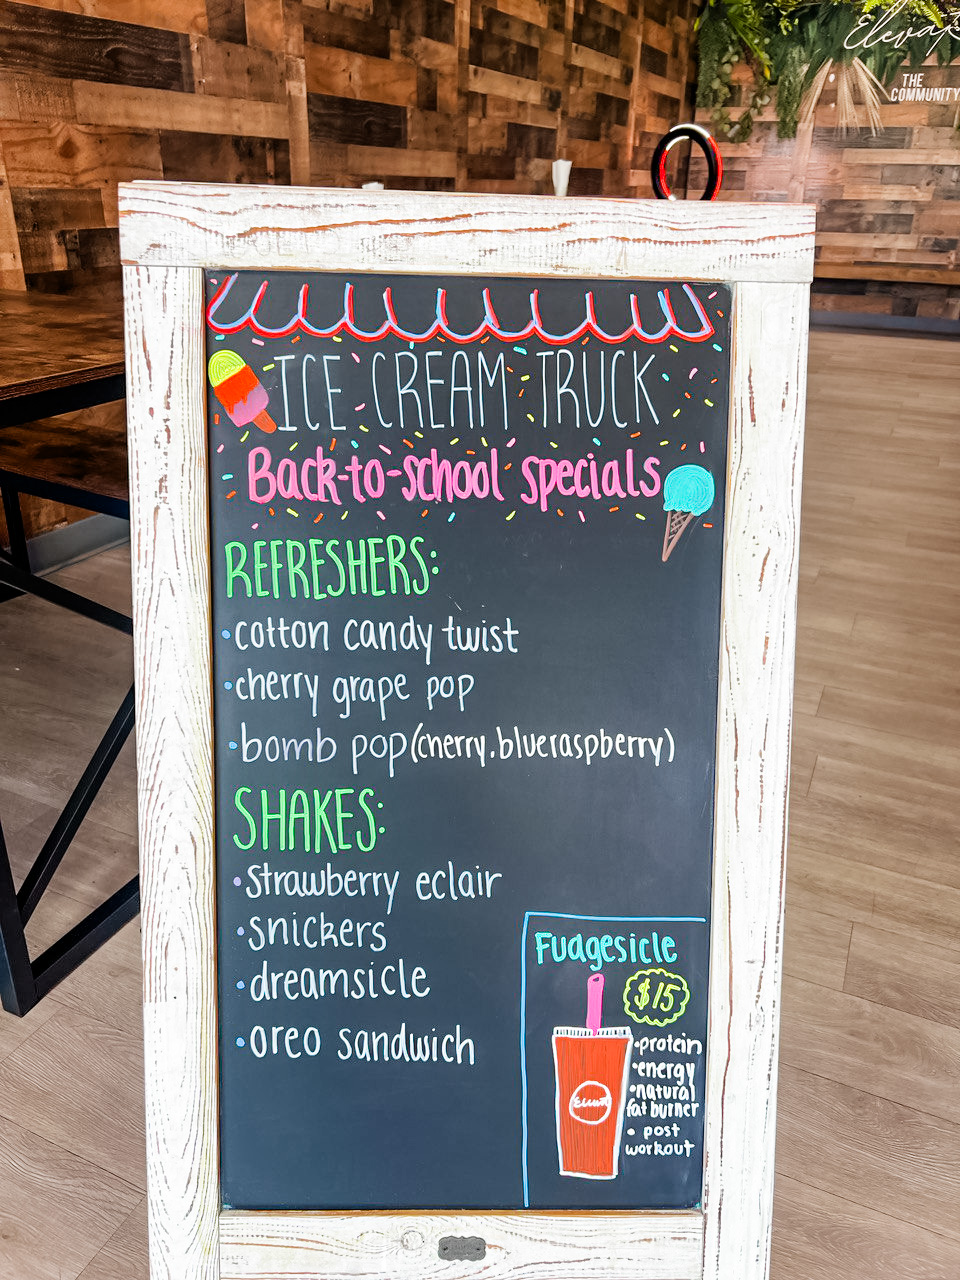 Elevat
THE
COMMUNITY
ICE CREAM TRUCK
Back-to-school specials
REFRESHERS:
•cotton candy twist
•cherry grape pop
•bomb pop (cherry, blueraspberry)
SHAKES:
•strawberry eclair
•snickers
•dreamsicle
•oreo sandwich
Fudgesicle
$15
•protein
•energy
•natural
fat burner
• post
workout